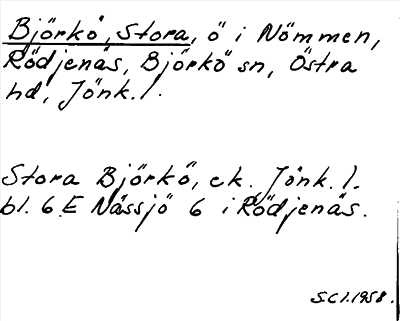 Björkö, Stora, ö i Nömmen,
Rödjenäs, Björkö sn, Östra
hd, Jönk. l.
Stora Björkö, ek. Jönk. l.
bl. 6 E Nässjö 6 i Rödjenäs.
S.C.1.1958.